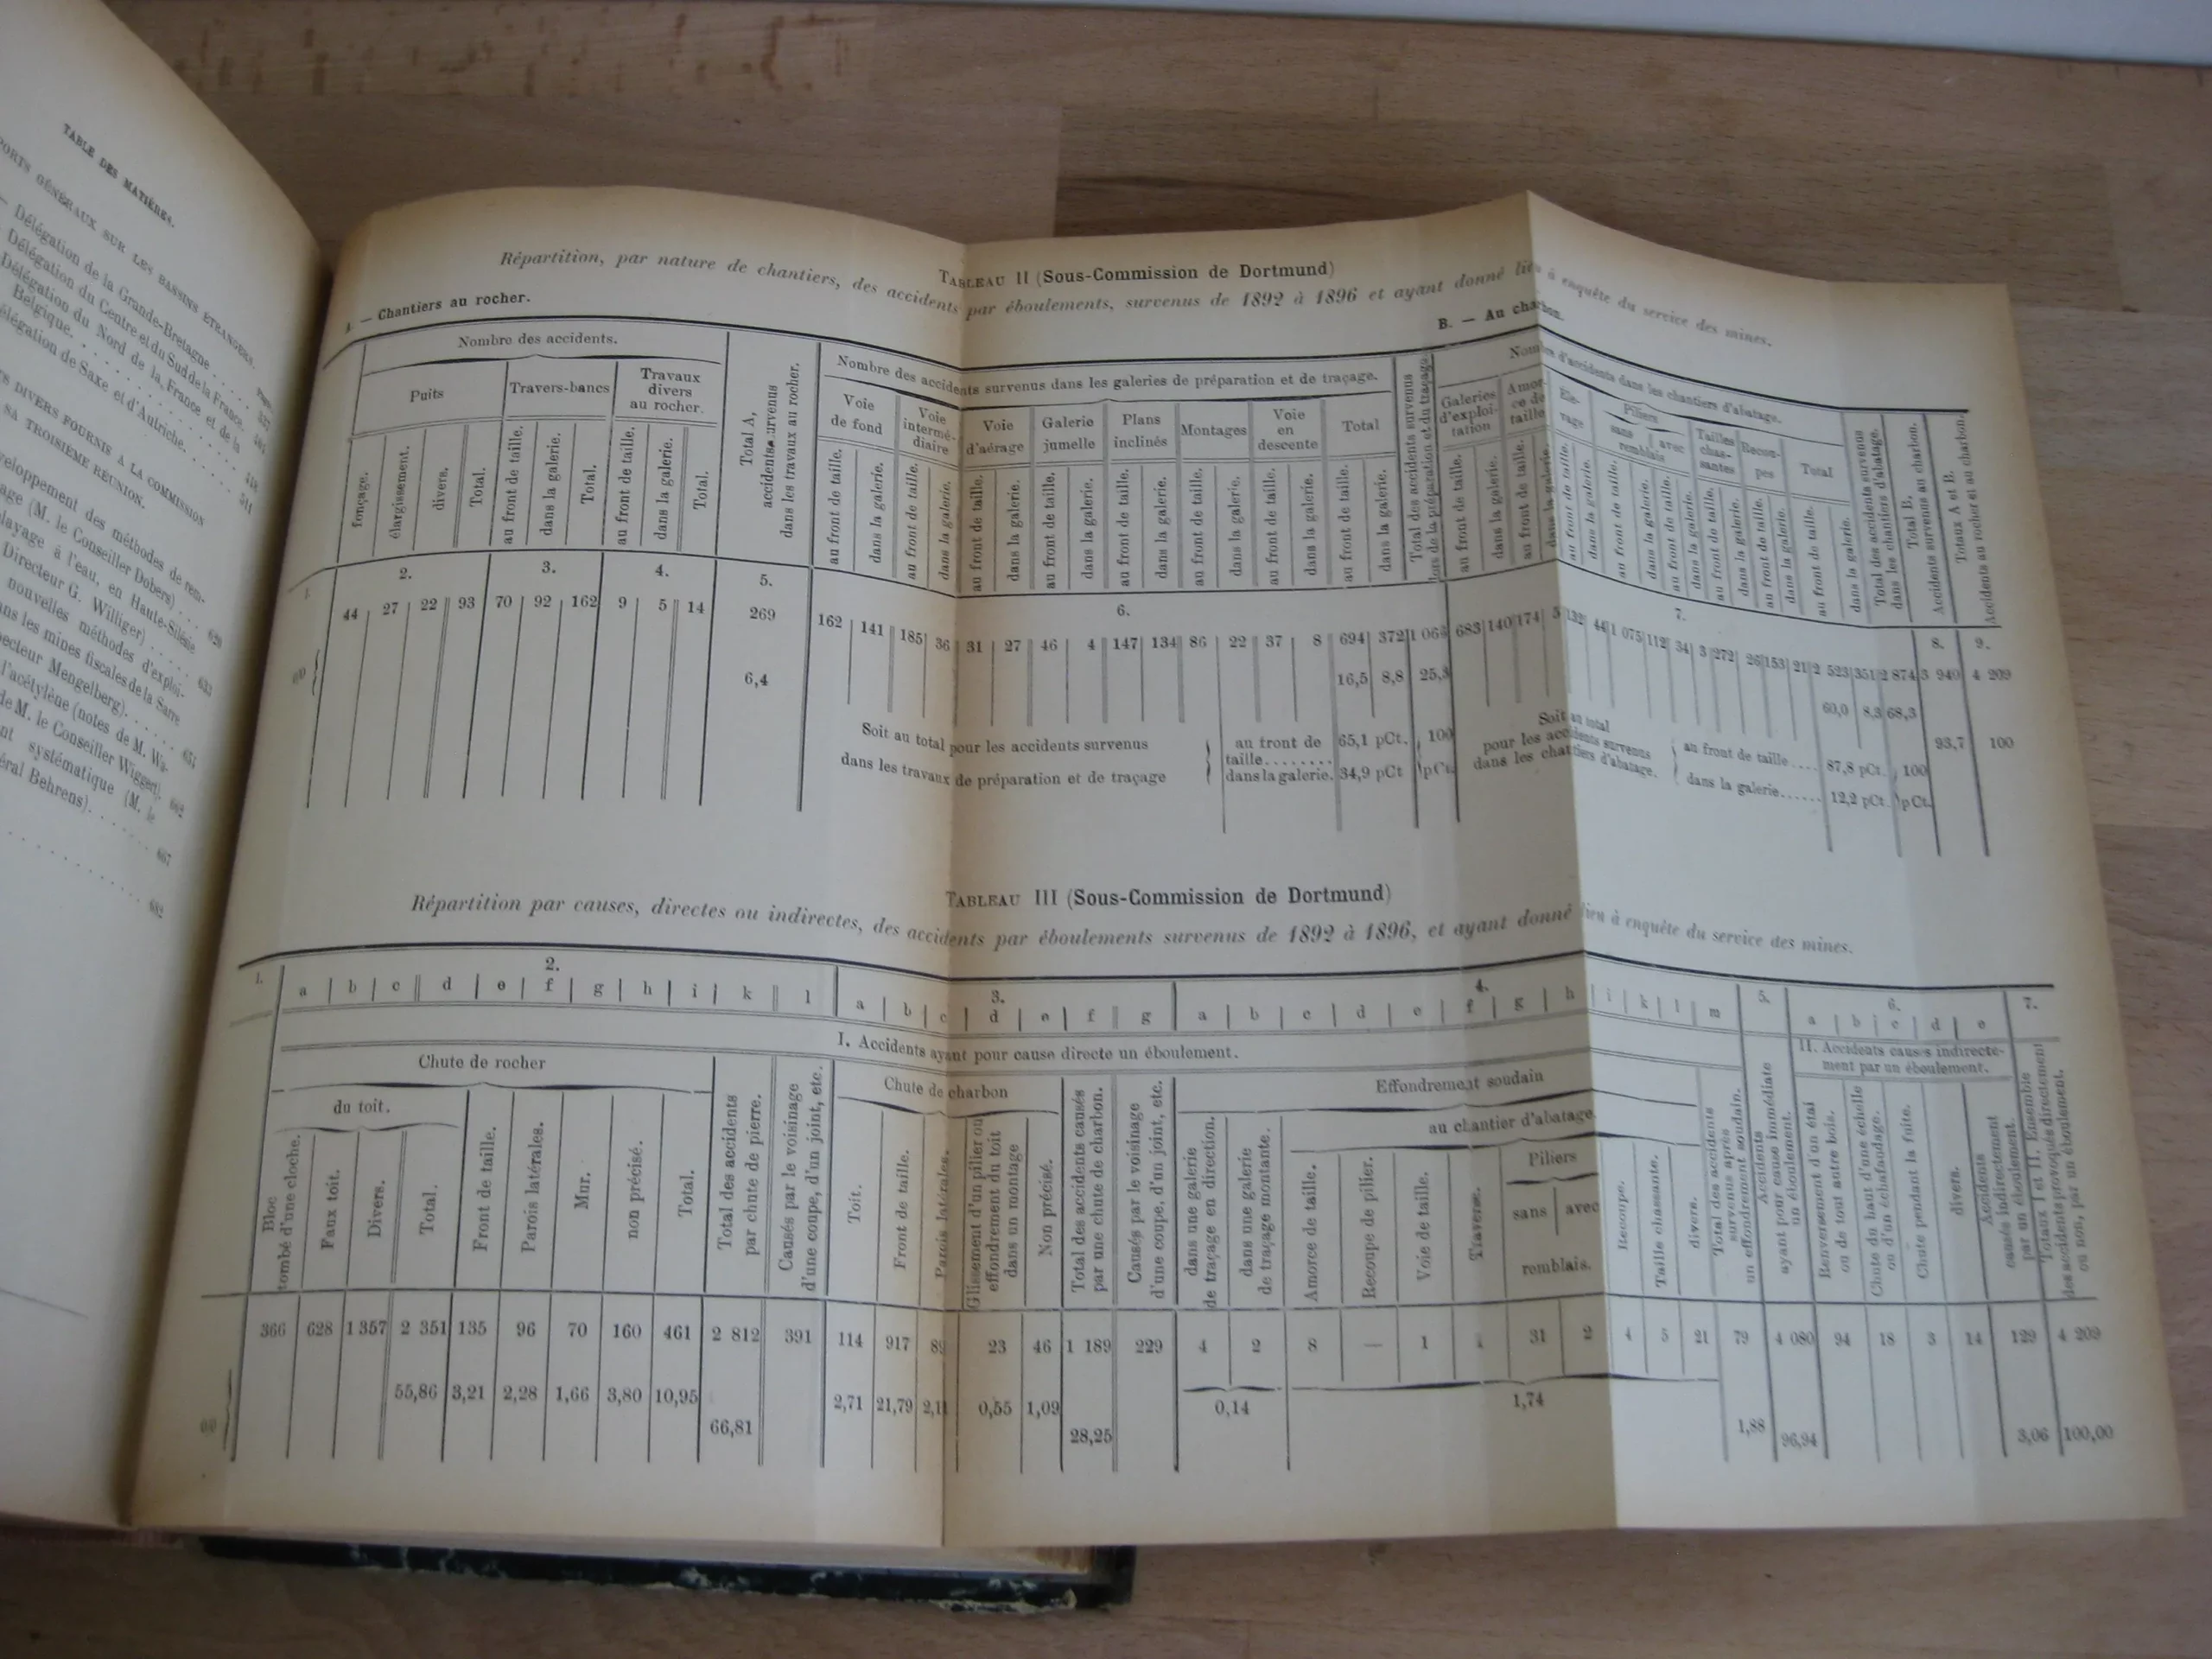 TABLE DES MATIÈRES.
PORTS GÉNÉRAUX SUR LES BASSINS ÉTRANGERS.
Pages.
— Délégation de la Grande-Bretagne
Délégation du Centre et du Sud de la France.
Délégation du Nord de la France et de la
Belgique.
élégation de Saxe et d'Autriche.
S DIVERS FOURNIS A LA COMMISSION
SA TROISIÈME RÉUNION.
veloppement des méthodes de rem-
age (M. le Conseiller Dobers)
blayage à l'eau, en Haute-Silésie
Directeur G. Williger)
nouvelles méthodes d'exploi-
ans les mines fiscales de la Sarre
pecteur Mengelberg).
l'acétylène (notes de M. Wa-
de M. le Conseiller Wiggert).
nt systématique (M. le
éral Behrens).
667
682
TABLEAU II (Sous-Commission de Dortmund)
Répartition, par nature de chantiers, des accidents par éboulements, survenus de 1892 à 1896 et ayant donné lieu à enquête du service des mines.
A. — Chantiers au rocher.
B. — Au charbon.
Nombre des accidents.
Puits
Travers-bancs
Travaux divers au rocher.
Total A, accidents survenus dans les travaux au rocher.
fonçage.
élargissement.
divers.
Total.
au front de taille.
dans la galerie.
Total.
au front de taille.
dans la galerie.
Total.
Nombre des accidents survenus dans les galeries de préparation et de traçage.
Voie de fond
Voie intermédiaire
Voie d'aérage
Galerie jumelle
Plans inclinés
Montages
Voie en descente
Total
au front de taille.
dans la galerie.
au front de taille.
dans la galerie.
au front de taille.
dans la galerie.
au front de taille.
dans la galerie.
au front de taille.
dans la galerie.
au front de taille.
dans la galerie.
au front de taille.
dans la galerie.
au front de taille.
dans la galerie.
Total des accidents survenus lors de la préparation et du traçage
Nombre d'accidents dans les chantiers d'abatage.
Galeries d'exploitation
Amorce de taille
Elevage
Piliers
sans
avec
remblais
Tailles chassantes
Recoupes
Total
au front de taille.
dans la galerie.
au front de taille.
dans la galerie.
au front de taille.
dans la galerie.
au front de taille.
dans la galerie.
au front de taille.
dans la galerie.
au front de taille.
dans la galerie.
au front de taille.
dans la galerie.
au front de taille.
dans la galerie.
Total des accidents survenus dans les chantiers d'abatage.
Total B. Accidents survenus au charbon.
Totaux A et B. Accidents au rocher et au charbon.
1. 2. 3. 4. 5. 6. 7. 8. 9.
44 27 22 93 70 92 162 9 5 14 269 162 141 185 36 31 27 46 4 147 134 86 22 37 8 694 372 1 066 683 140 174 5 132 44 1 075 112 34 3 272 26 153 21 2 523 351 2 874 3 940 4 209
6,4 16,5 8,8 25,3 60,0 8,3 68,3 93,7 100
Soit au total pour les accidents survenus dans les travaux de préparation et de traçage
au front de taille........ 65,1 pCt.
dans la galerie. 34,9 pCt
100 pCt.
Soit au total pour les accidents survenus dans les chantiers d'abatage.
au front de taille.... 87,8 pCt.
dans la galerie...... 12,2 pCt.
100 pCt.
TABLEAU III (Sous-Commission de Dortmund)
Répartition par causes, directes ou indirectes, des accidents par éboulements survenus de 1892 à 1896, et ayant donné lieu à enquête du service des mines.
1. 2. 3. 4. 5. 6. 7.
a b c d e f g h i k l a b c d e f g a b c d e f g h i k l m a b c d e
I. Accidents ayant pour cause directe un éboulement.
II. Accidents causés indirectement par un éboulement.
Chute de rocher
du toit.
Bloc tombé d'une cloche.
Faux toit.
Divers.
Total.
Front de taille.
Parois latérales.
Mur.
non précisé.
Total.
Total des accidents par chute de pierre.
Causés par le voisinage d'une coupe, d'un joint, etc.
Chute de charbon
Toit.
Front de taille.
Parois latérales.
Glissement d'un pilier ou effondrement du toit dans un montage
Non précisé.
Total des accidents causés par une chute de charbon.
Causés par le voisinage d'une coupe, d'un joint, etc.
Effondrement soudain
dans une galerie de traçage en direction.
dans une galerie de traçage montante.
au chantier d'abatage.
Amorce de taille.
Recoupe de pilier.
Voie de taille.
Traverse.
Piliers
sans
avec
remblais.
Recoupe.
Taille chassante.
divers.
Total des accidents survenus après un effondrement soudain.
Accidents ayant pour cause immédiate un éboulement.
Renversement d'un étai ou de tout autre bois.
Chute du haut d'une échelle ou d'un échafaudage.
Chute pendant la fuite.
divers.
Accidents causés indirectement par un éboulement.
Totaux I et II. Ensemble des accidents provoqués directement ou non, par un éboulement.
366 628 1 357 2 351 135 96 70 160 461 2 812 391 114 917 89 23 46 1 189 229 4 2 8 — 1 31 2 4 5 21 79 4 080 94 18 3 14 129 4 209
55,86 3,21 2,28 1,66 3,80 10,95 66,81 2,71 21,79 2,11 0,55 1,09 28,25 0,14 1,74 1,88 96,94 3,06 100,00